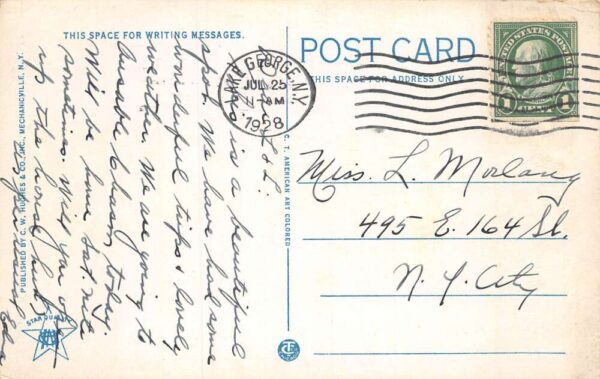 THIS SPACE FOR WRITING MESSAGES.
POST CARD
THIS SPACE FOR ADDRESS ONLY
UNITED STATES POSTAGE
1 CENT 1
LAKE GEORGE, N.Y.
JUL 25
11-AM
1928
L & L:
This is a beautiful
spot. We have had some
wonderful trips & lovely
weather. We are going to
Ausable Chasm, today.
Will be home Sat. nite
sometime. Will you open
up the house
Miss. L. Morlang
495 E. 164 St.
N. Y. City
PUBLISHED BY C. W. HUGHES & CO., INC., MECHANICVILLE, N. Y.
C. T. AMERICAN ART COLORED
STAR QUALITY